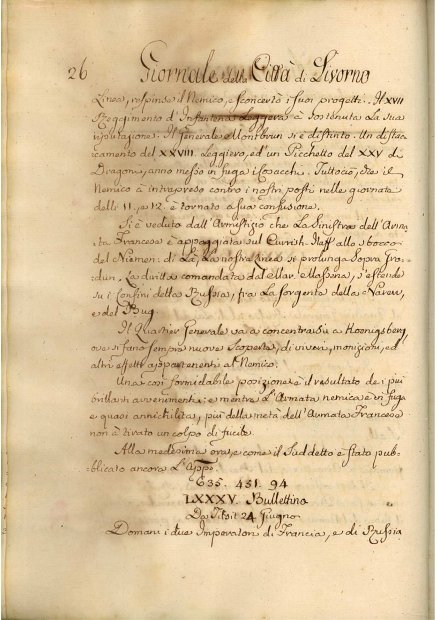 26 Giornale della Città di Livorno
Linea, respinse il Nemico, e sconcertò i suoi progetti. Il XVII
Reggimento d'Infanteria Leggera à sostenuta la sua
riputazione. Il Generale Montbrun si è distinto. Un distac
camento del XXVIII Leggiero, ed un Picchetto del XXV di
Dragoni, anno messo in fuga i Cosacchi. Tuttociò, che il
Nemico à intrapreso contro i nostri posti nelle giornate
delli 11, e 12 è tornato a sua confusione.
Si è veduto dall'Armistizio che La Sinistra dell'Arma
ta Francese è appoggiata sul Currish-Haff allo sbocco
del Niemen: di Lì, La nostra Linea si prolunga sopra Gro
dun. La diritta comandata dal Mar. Massena, s'estende
su i Confini della Russia, fra La sorgente della Narew,
e del Bug.
Il Quartier Generale va a concentrarsi a Koenigsberg,
ove si fanno sempre nuove Scoperte, di viveri, monizioni, ed
altri effetti appartenenti al Nemico.
Una così formidabile posizione è il resultato dei più
brillanti avvenimenti: e mentre L'Armata nemica è in fuga
e quasi annichilita, più della metà dell'Armata Francese
non à tirato un colpo di fucile.
Alla medesima ora, e come il Suddetto è stato pub-
blicato ancora L'Appº.
635. 431. 94
LXXXV. Bullettino
Da Tilsit 24 Giugno
Domani i due Imperatori di Francia, e di Russia